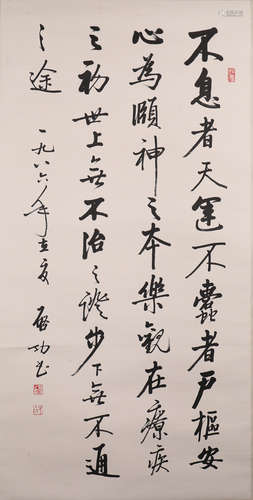 不息者天運不蠹者戶樞安
心為頤神之本樂觀在療疾
之初世上無不治之證步下無不通
之途
一九八六年立夏 啟功書